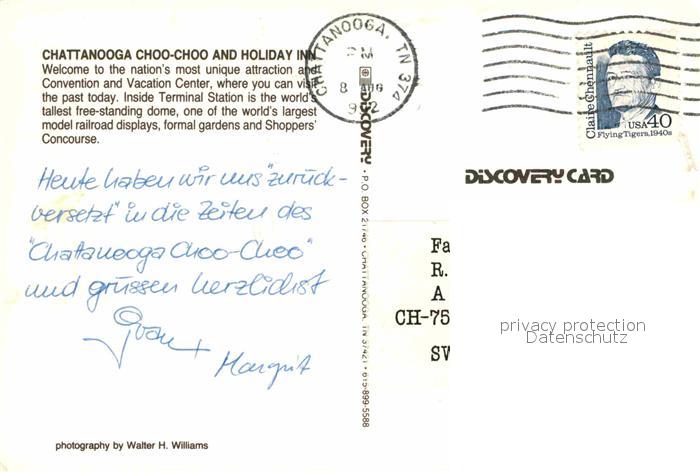 CHATTANOOGA CHOO-CHOO AND HOLIDAY INN
Welcome to the nation's most unique attraction and
Convention and Vacation Center, where you can visit
the past today. Inside Terminal Station is the world's
tallest free-standing dome, one of the world's largest
model railroad displays, formal gardens and Shoppers'
Concourse.
Heute haben wir uns "zurück-
versetzt" in die Zeiten des
"Chattanooga Choo-Choo"
und grüssen herzlichst
Margrit
photography by Walter H. Williams
CHATTANOOGA, TN 374
PM
8 AUG
DISCOVERY • P.O. BOX 21746 • CHATTANOOGA, TN 37421 • 615-899-5588
Claire Chennault
USA 40
Flying Tigers, 1940s
DISCOVERY CARD
Fa
R.
A
CH-75
SW
privacy protection
Datenschutz